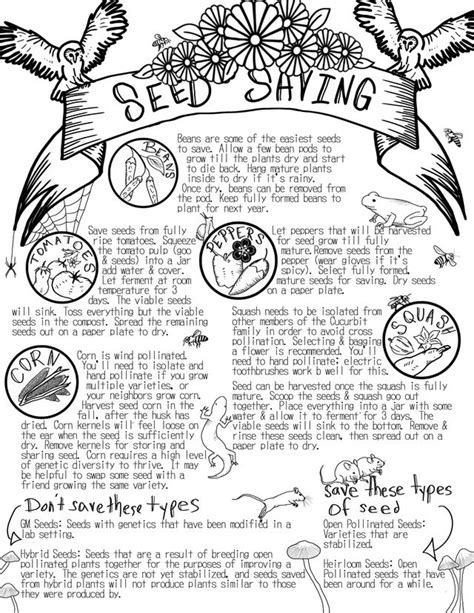 SEED SAVING
BEANS
Beans are some of the easiest seeds
to save. Allow a few bean pods to
grow till the plants dry and start
to die back. Hang mature plants
inside to dry if it's rainy.
Once dry, beans can be removed from
the pod. Keep fully formed beans to
plant for next year.
TOMATOES
Save seeds from fully
ripe tomatoes. Squeeze
the tomato pulp (goo
& seeds) into a Jar
add water & cover.
Let ferment at room
temperature for 3
days. The viable seeds
will sink. Toss everything but the viable
seeds in the compost. Spread the remaining
seeds out on a paper plate to dry.
PEPPERS
Let peppers that will be harvested
for seed grow till fully
mature. Remove seeds from the
pepper (wear gloves if it's
spicy). Select fully formed,
mature seeds for saving. Dry seeds
on a paper plate.
SQUASH
Squash needs to be isolated from
other members of the Cucurbit
family in order to avoid cross
pollination. Selecting & bagging
a flower is recommended. You'll
need to hand pollinate: electric
toothbrushes work b well for this.
Seed can be harvested once the squash is fully
mature. Scoop the seeds & squash goo out
together. Place everything into a Jar with some
water & allow it to ferment for 3 days. The
viable seeds will sink to the bottom. Remove &
rinse these clean, then spread out on a
paper plate to dry.
CORN
Corn is wind pollinated.
You'll need to isolate and
hand pollinate if you grow
multiple varieties, or
your neighbors grow corn.
Harvest seed corn in the
fall, after the husk has
dried. Corn kernels will feel loose on
the ear when the seed is sufficiently
dry. Remove kernels for storing and
sharing seed. Corn requires a high level
of genetic diversity to thrive. It may
be helpful to swap some seed with a
friend growing the same variety.
Don't save these types
GM Seeds: Seeds with genetics that have been modified in a
lab setting.
Hybrid Seeds: Seeds that are a result of breeding open
pollinated plants together for the purposes of improving a
variety. The genetics are not yet stabilized, and seeds saved
from hybrid plants will not produce plants similar to those
they were produced by.
Save these types
of seed
Open Pollinated Seeds:
Varieties that are
stabilized.
Heirloom Seeds: Open
Pollinated seeds that have
been around for a while.